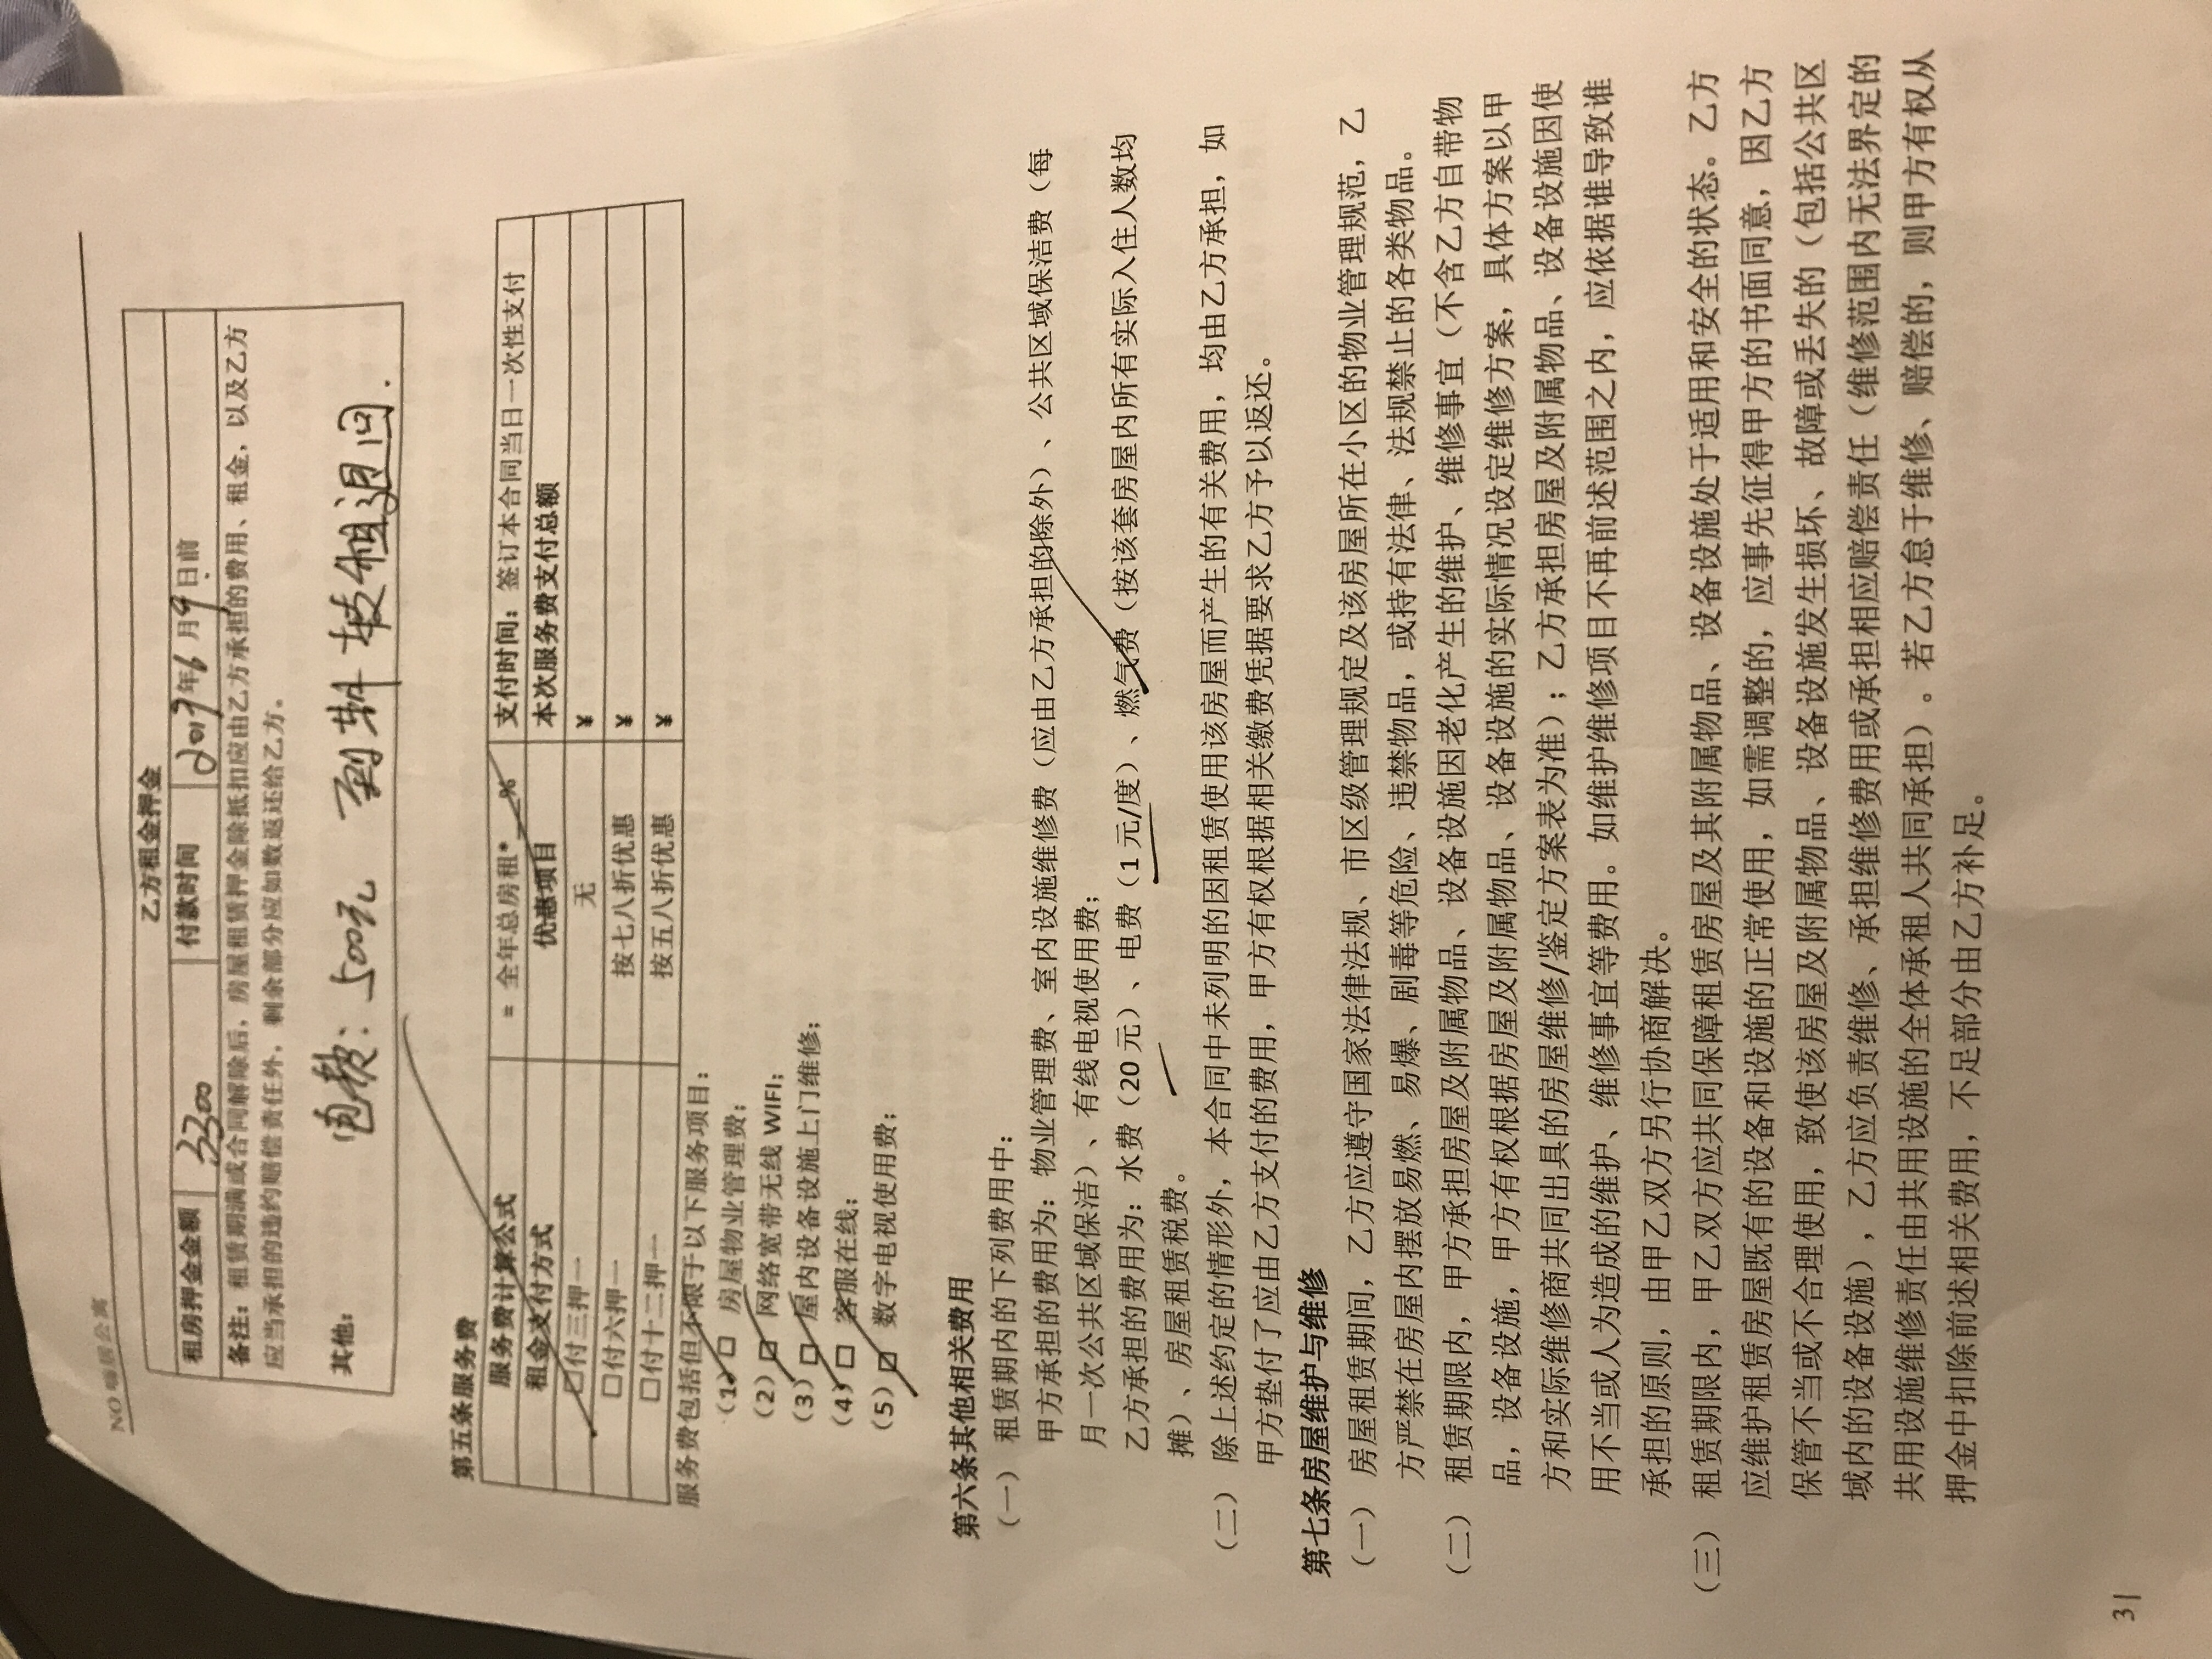 NO 喵居公寓
乙方租金押金
租房押金金额 3300 付款时间 2019年6月9日前
备注：租赁期满或合同解除后，房屋租赁押金除抵扣应由乙方承担的费用、租金，以及乙方
应当承担的违约赔偿责任外，剩余部分应如数返还给乙方。
其他： 电费：500元 到期 按租退回.
第五条服务费
服务费计算公式 = 全年总房租*___% 支付时间：签订本合同当日一次性支付
租金支付方式 优惠项目 本次服务费支付总额
□付三押一 无 ¥
□付六押一 按七八折优惠 ¥
□付十二押一 按五八折优惠 ¥
服务费包括但不限于以下服务项目：
（1）□ 房屋物业管理费；
（2）□ 网络宽带无线 WIFI；
（3）□ 屋内设备设施上门维修；
（4）□ 客服在线；
（5）□ 数字电视使用费；
第六条其他相关费用
（一） 租赁期内的下列费用中：
甲方承担的费用为：物业管理费、室内设施维修费（应由乙方承担的除外）、公共区域保洁费（每
月一次公共区域保洁）、有线电视使用费；
乙方承担的费用为：水费（20 元）、电费（1 元/度）、燃气费（按该套房屋内所有实际入住人数均
摊）、房屋租赁税费。
（二） 除上述约定的情形外，本合同中未列明的因租赁使用该房屋而产生的有关费用，均由乙方承担，如
甲方垫付了应由乙方支付的费用，甲方有权根据相关缴费凭据要求乙方予以返还。
第七条房屋维护与维修
（一） 房屋租赁期间，乙方应遵守国家法律法规、市区级管理规定及该房屋所在小区的物业管理规范，乙
方严禁在房屋内摆放易燃、易爆、剧毒等危险、违禁物品，或持有法律、法规禁止的各类物品。
（二） 租赁期限内，甲方承担房屋及附属物品、设备设施因老化产生的维护、维修事宜（不含乙方自带物
品，设备设施，甲方有权根据房屋及附属物品、设备设施的实际情况设定维修方案，具体方案以甲
方和实际维修商共同出具的房屋维修/鉴定方案表为准）；乙方承担房屋及附属物品、设备设施因使
用不当或人为造成的维护、维修事宜等费用。如维护维修项目不再前述范围之内，应依据谁导致谁
承担的原则，由甲乙双方另行协商解决。
（三） 租赁期限内，甲乙双方应共同保障租赁房屋及其附属物品、设备设施处于适用和安全的状态。乙方
应维护租赁房屋既有的设备和设施的正常使用，如需调整的，应事先征得甲方的书面同意，因乙方
保管不当或不合理使用，致使该房屋及附属物品、设备设施发生损坏、故障或丢失的（包括公共区
域内的设备设施），乙方应负责维修、承担维修费用或承担相应赔偿责任（维修范围内无法界定的
共用设施维修责任由共用设施的全体承租人共同承担）。若乙方怠于维修、赔偿的，则甲方有权从
押金中扣除前述相关费用，不足部分由乙方补足。
3|